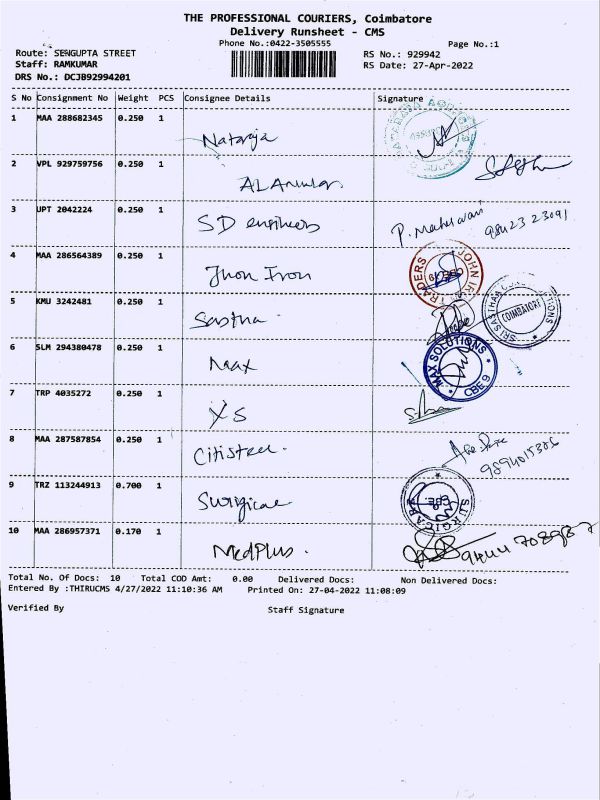 THE PROFESSIONAL COURIERS, Coimbatore
Delivery Runsheet - CMS
Phone No.:0422-3505555 Page No.:1
Route: SENGUPTA STREET RS No.: 929942
Staff: RAMKUMAR RS Date: 27-Apr-2022
DRS No.: DCJB92994201
S No Consignment No Weight PCS Consignee Details Signature
1 MAA 288682345 0.250 1 Nataraja
2 VPL 929759756 0.250 1
3 UPT 2042224 0.250 1 SD engineers P. Maheswari
4 MAA 286564389 0.250 1 Jhon Iron JOHN IRON TRADERS
5 KMU 3242481 0.250 1 Sastha SRI SASTHAA COIMBATORE
6 SLM 294380478 0.250 1 Max MAX SOLUTIONS CBE 9
7 TRP 4035272 0.250 1 XS
8 MAA 287587854 0.250 1 Citisteel. 9894015306
9 TRZ 113244913 0.700 1 SURGICARE CBE
10 MAA 286957371 0.170 1 MedPlus.
Total No. Of Docs: 10 Total COD Amt: 0.00 Delivered Docs: Non Delivered Docs:
Entered By :THIRUCMS 4/27/2022 11:10:36 AM Printed On: 27-04-2022 11:08:09
Verified By Staff Signature